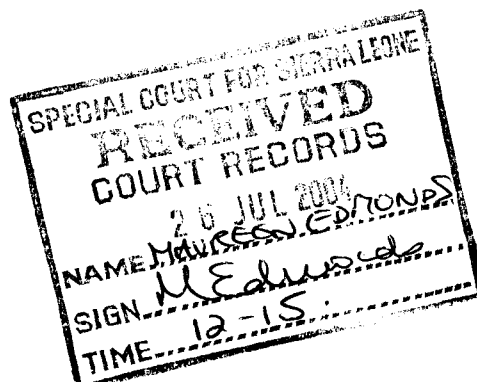 SPECIAL COURT FOR SIERRA LEONE
RECEIVED
COURT RECORDS
26 JUL 2004
NAME MAUREEN EDMONDS
SIGN M Edmonds
TIME 12-15.